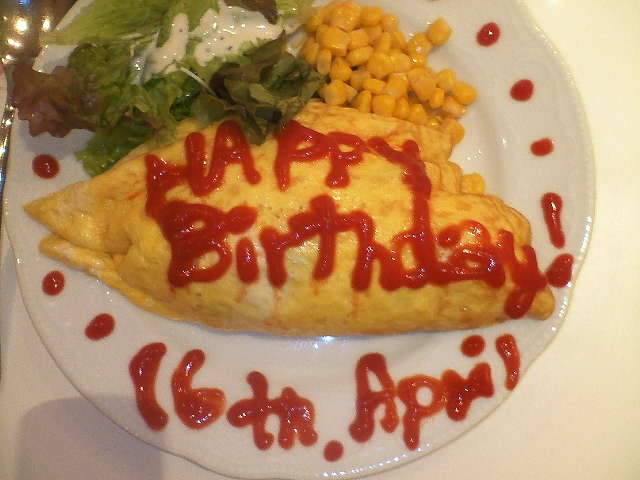 HAPPy
Birthday!
16th. April